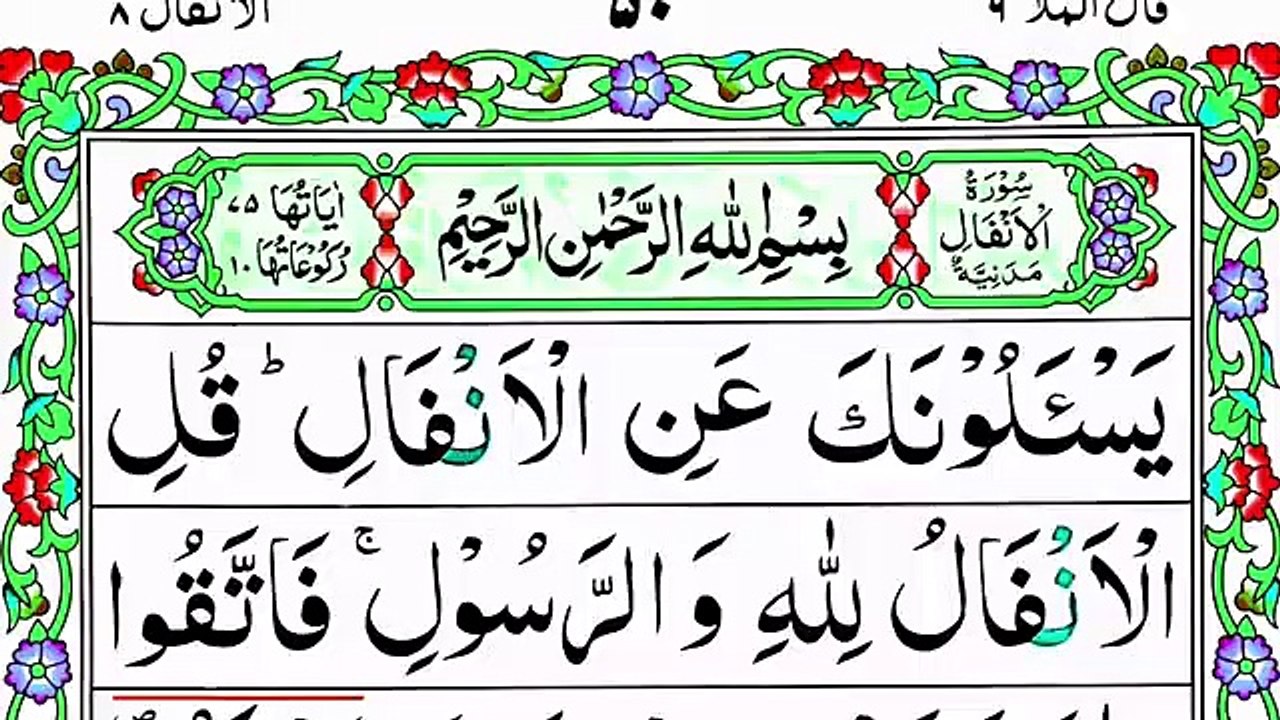 قال الملا ۹
الانفال ۸
سُوْرَةُ
الْاَنْفَالِ
مَدَنِيَّةٌ
بِسْمِ اللّٰهِ الرَّحْمٰنِ الرَّحِيْمِ
اٰيَاتُهَا ۷۵
رُكُوْعَاتُهَا ۱۰
يَسْـَٔلُوْنَكَ عَنِ الْاَنْفَالِ ؕ قُلِ
الْاَنْفَالُ لِلّٰهِ وَ الرَّسُوْلِ ۚ فَاتَّقُوا